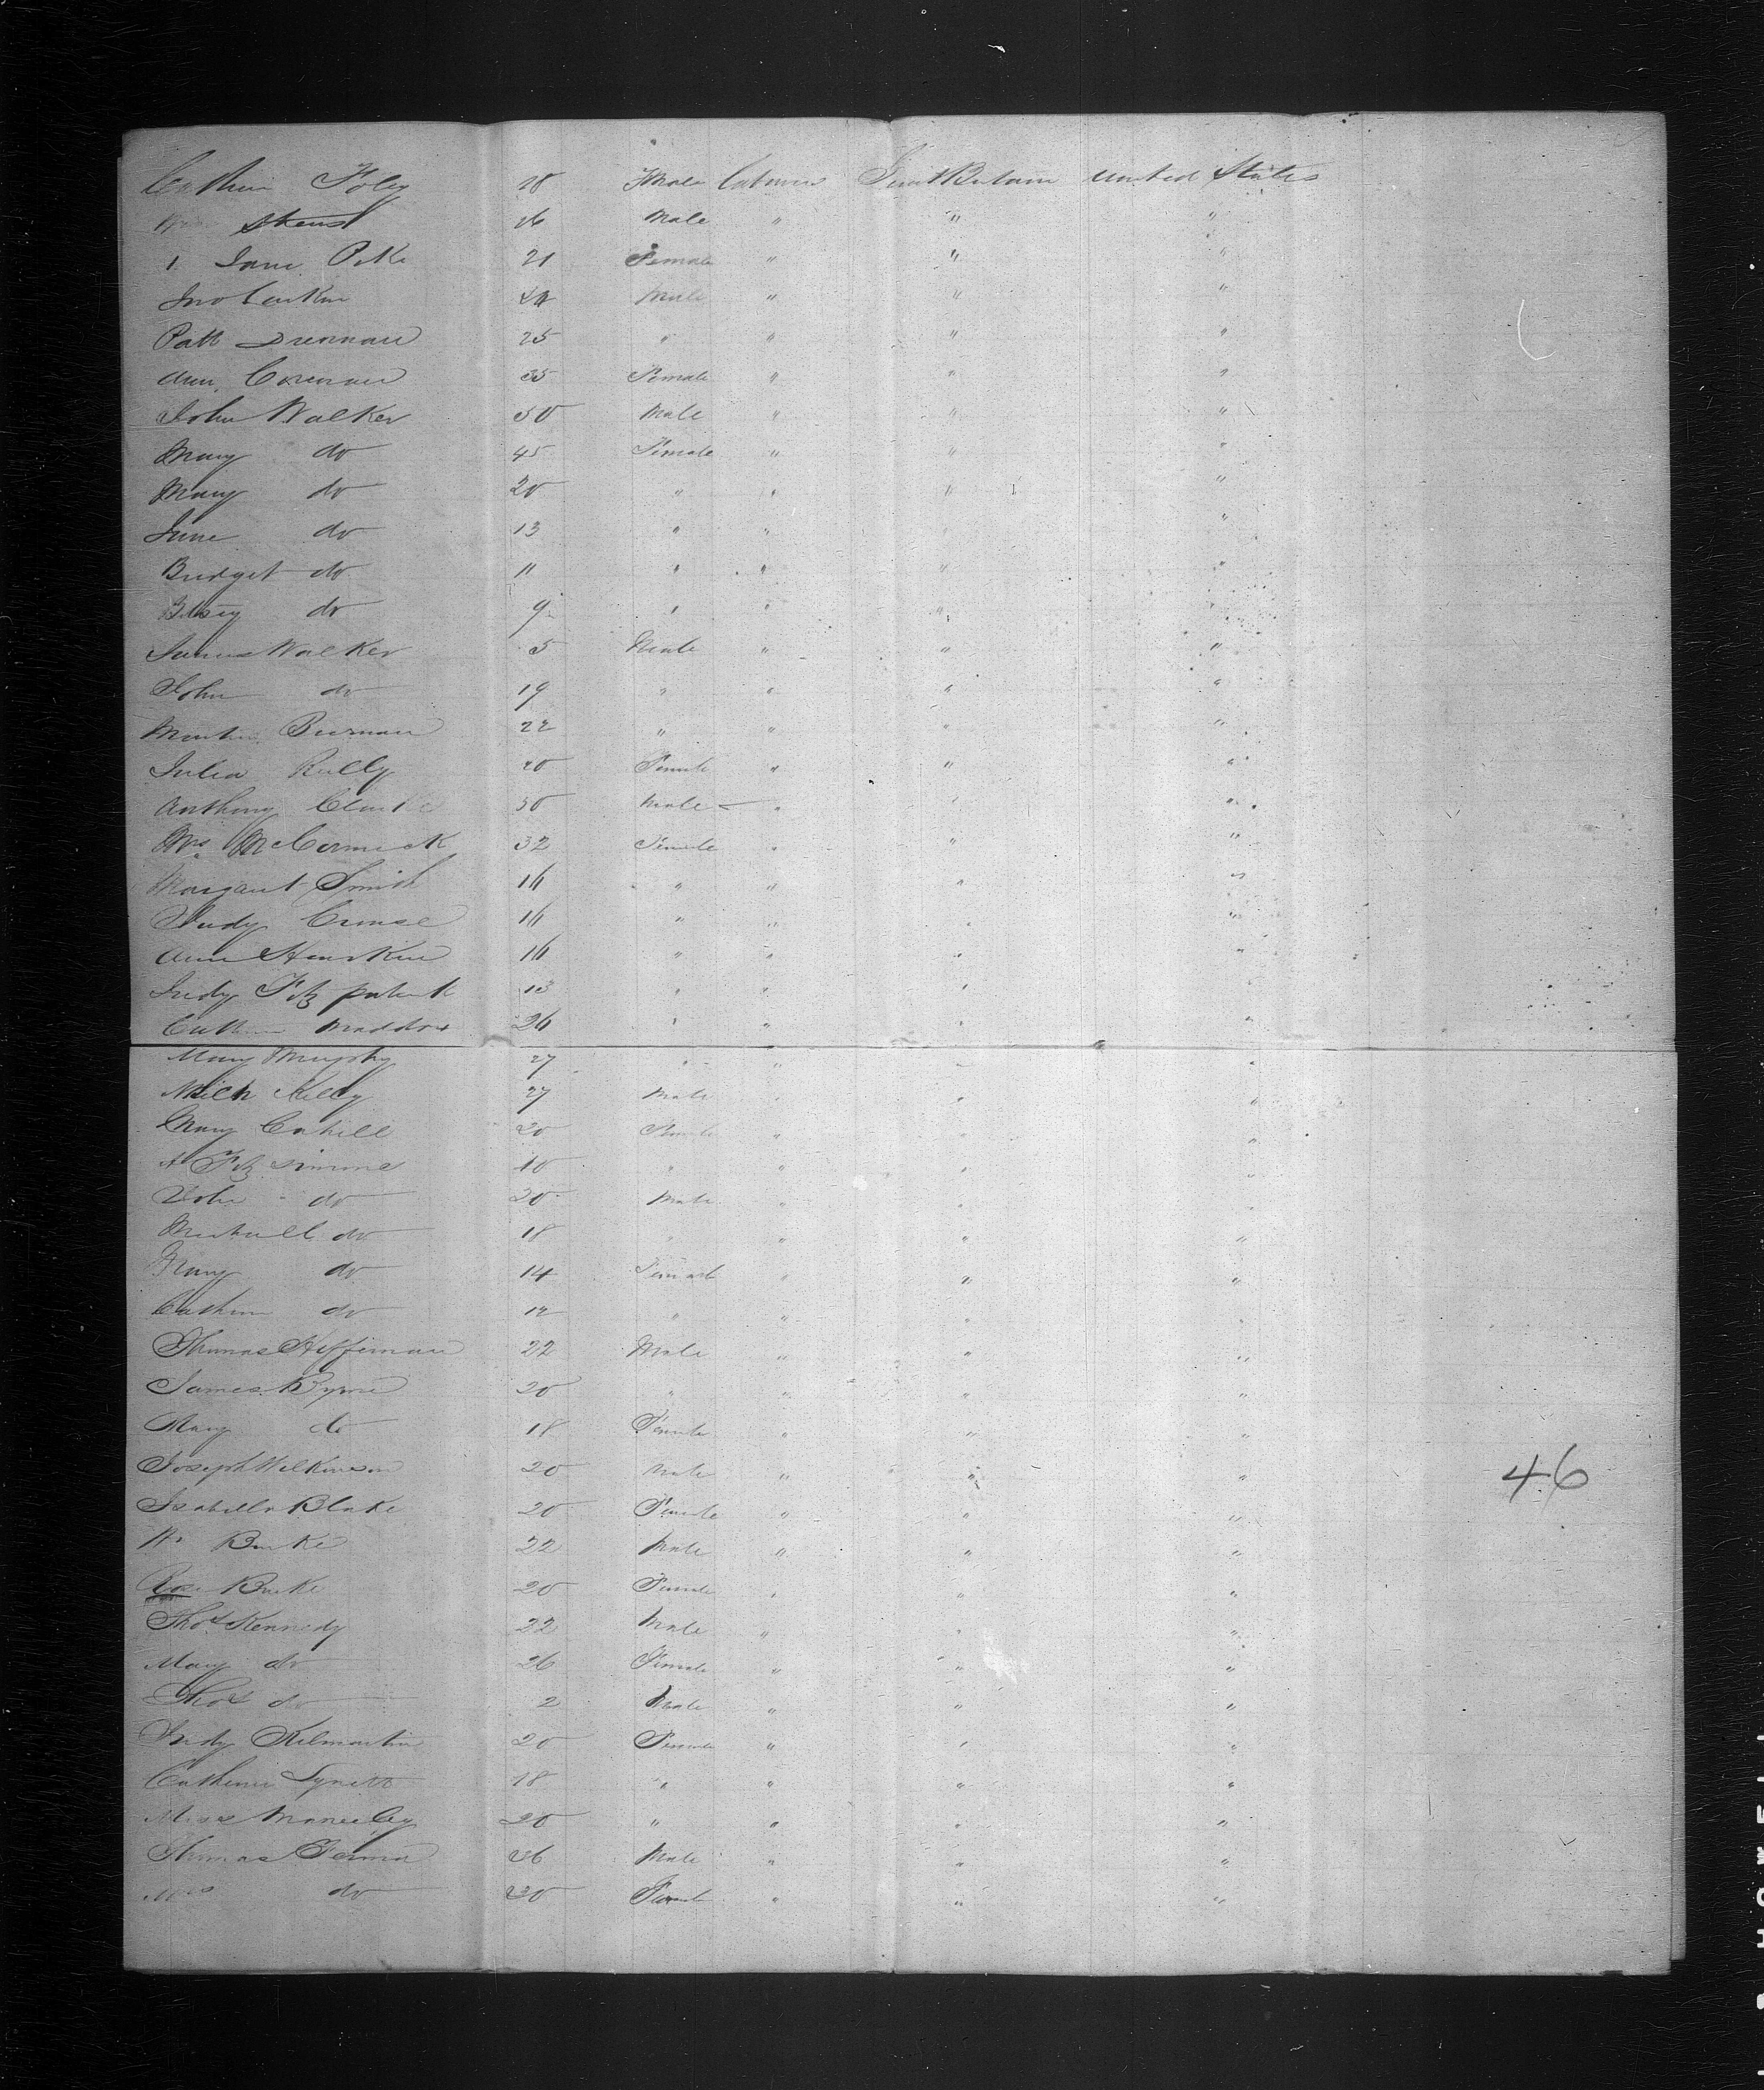 Foley 18 Female Laborer Great Britain United States
26 Male " " "
Jane 21 Female " " "
Jno 24 Male " " "
Patk Drennan 25 " " " "
Ann 35 Female " " "
John Walker 50 Male " " "
Mary do 45 Female " " "
Mary do 20 " " " "
Jane do 13 " " "
Bridget do 11 " " " "
Betsey do 9 " " " "
James Walker 5 Male " " "
John do 19 " " " "
Martin 22 " " " "
Julia 20 Female " " "
Anthony Clarke 30 Male " " "
Mrs McCormick 32 Female " " "
Margaret Smith 16 " " " "
Judy 16 " " " "
Ann 16 " " " "
Judy Fitzpatrick 13 " " " "
Maddox 26 " " " "
Mary Murphy 27 " " " "
Mich Kelly 27 Male " " "
Mary Cahill 20 Female " " "
Fitzsimons 40 " " " "
John do 20 Male " " "
Michall do 18 " " " "
Mary do 14 Female " " "
Cathrin do 12 " " " "
Thomas Heffernan 22 Male " " "
James Byrne 20 " " " "
Mary do 18 Female " " "
Joseph Wilkinson 20 Male " " "
Isabella Blake 20 Female " " "
Burke 22 Male " " "
Rose Burke 20 Female " " "
Thos Kennedy 22 Male " " "
Mary do 26 Female " " "
Thos do 2 Male " " "
Judy Kilmartin 20 Female " " "
Catherine 18 " " " "
Miss 20 " " " "
Thomas 26 Male " " "
Mrs do 20 Female " " "
46